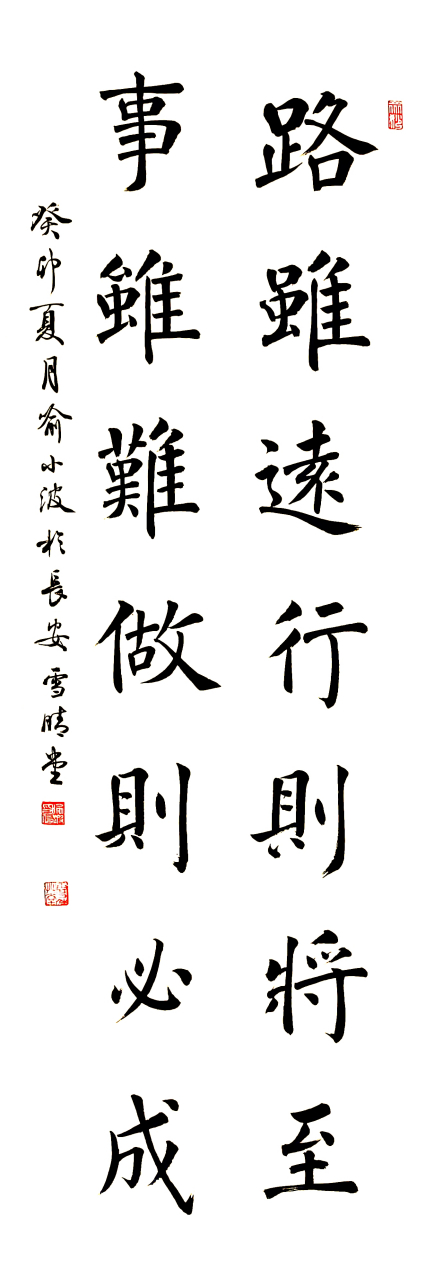 路雖遠行則將至
事雖難做則必成
癸卯夏月俞小波於長安雪晴堂